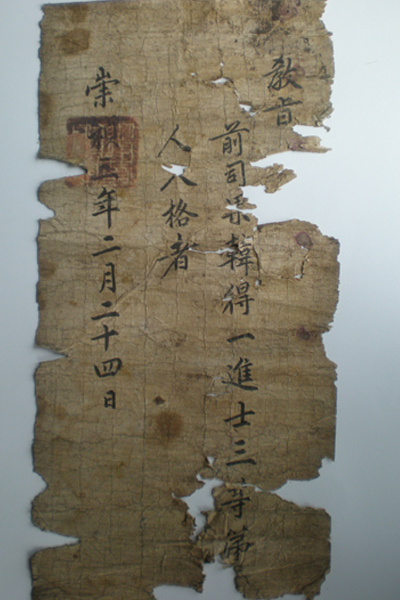 教旨
前司果韓得一進士三等第
人入格者
崇禎五年二月二十四日